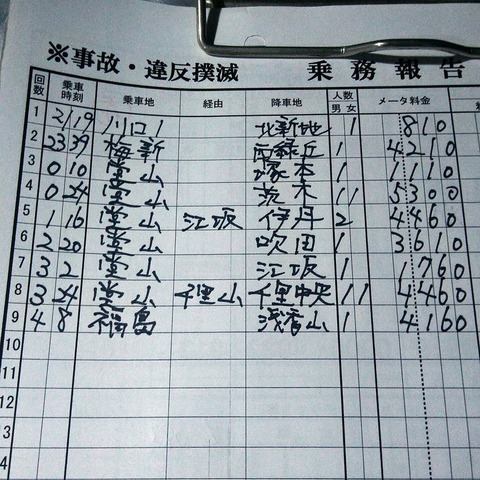 ※事故・違反撲滅 乗務報告
回数 乗車時刻 乗車地 経由 降車地 人数 男 女 メータ料金
1 21 19 川口1 北新地 1 810
2 23 39 梅新 南緑丘 1 4210
3 0 10 堂山 塚本 1 1110
4 0 24 堂山 茨木 1 1 5300
5 1 16 堂山 江坂 伊丹 2 4460
6 2 20 堂山 吹田 1 3610
7 3 2 堂山 江坂 1 1760
8 3 24 堂山 千里山 千里中央 1 1 4460
9 4 8 福島 浅香山 1 4160
10
11
12
13
4